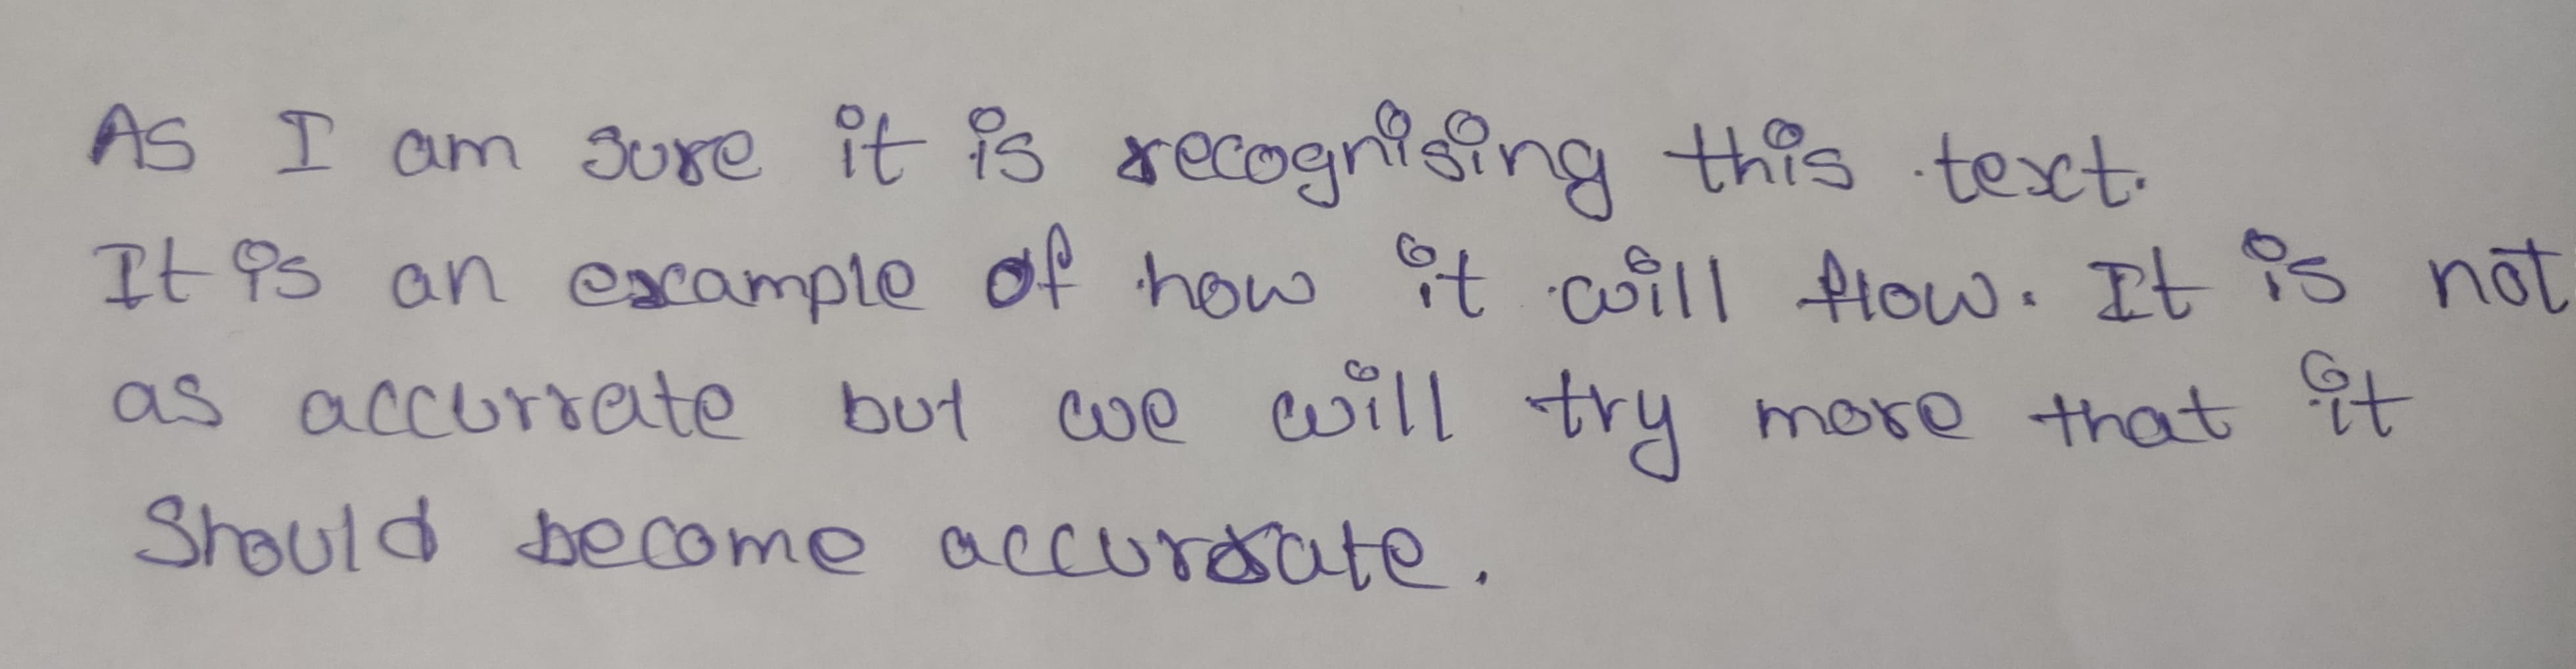 As I am sure it is recognising this text.
It is an example of how it will flow. It is not
as accurrate but we will try more that it
Should become accurrate.